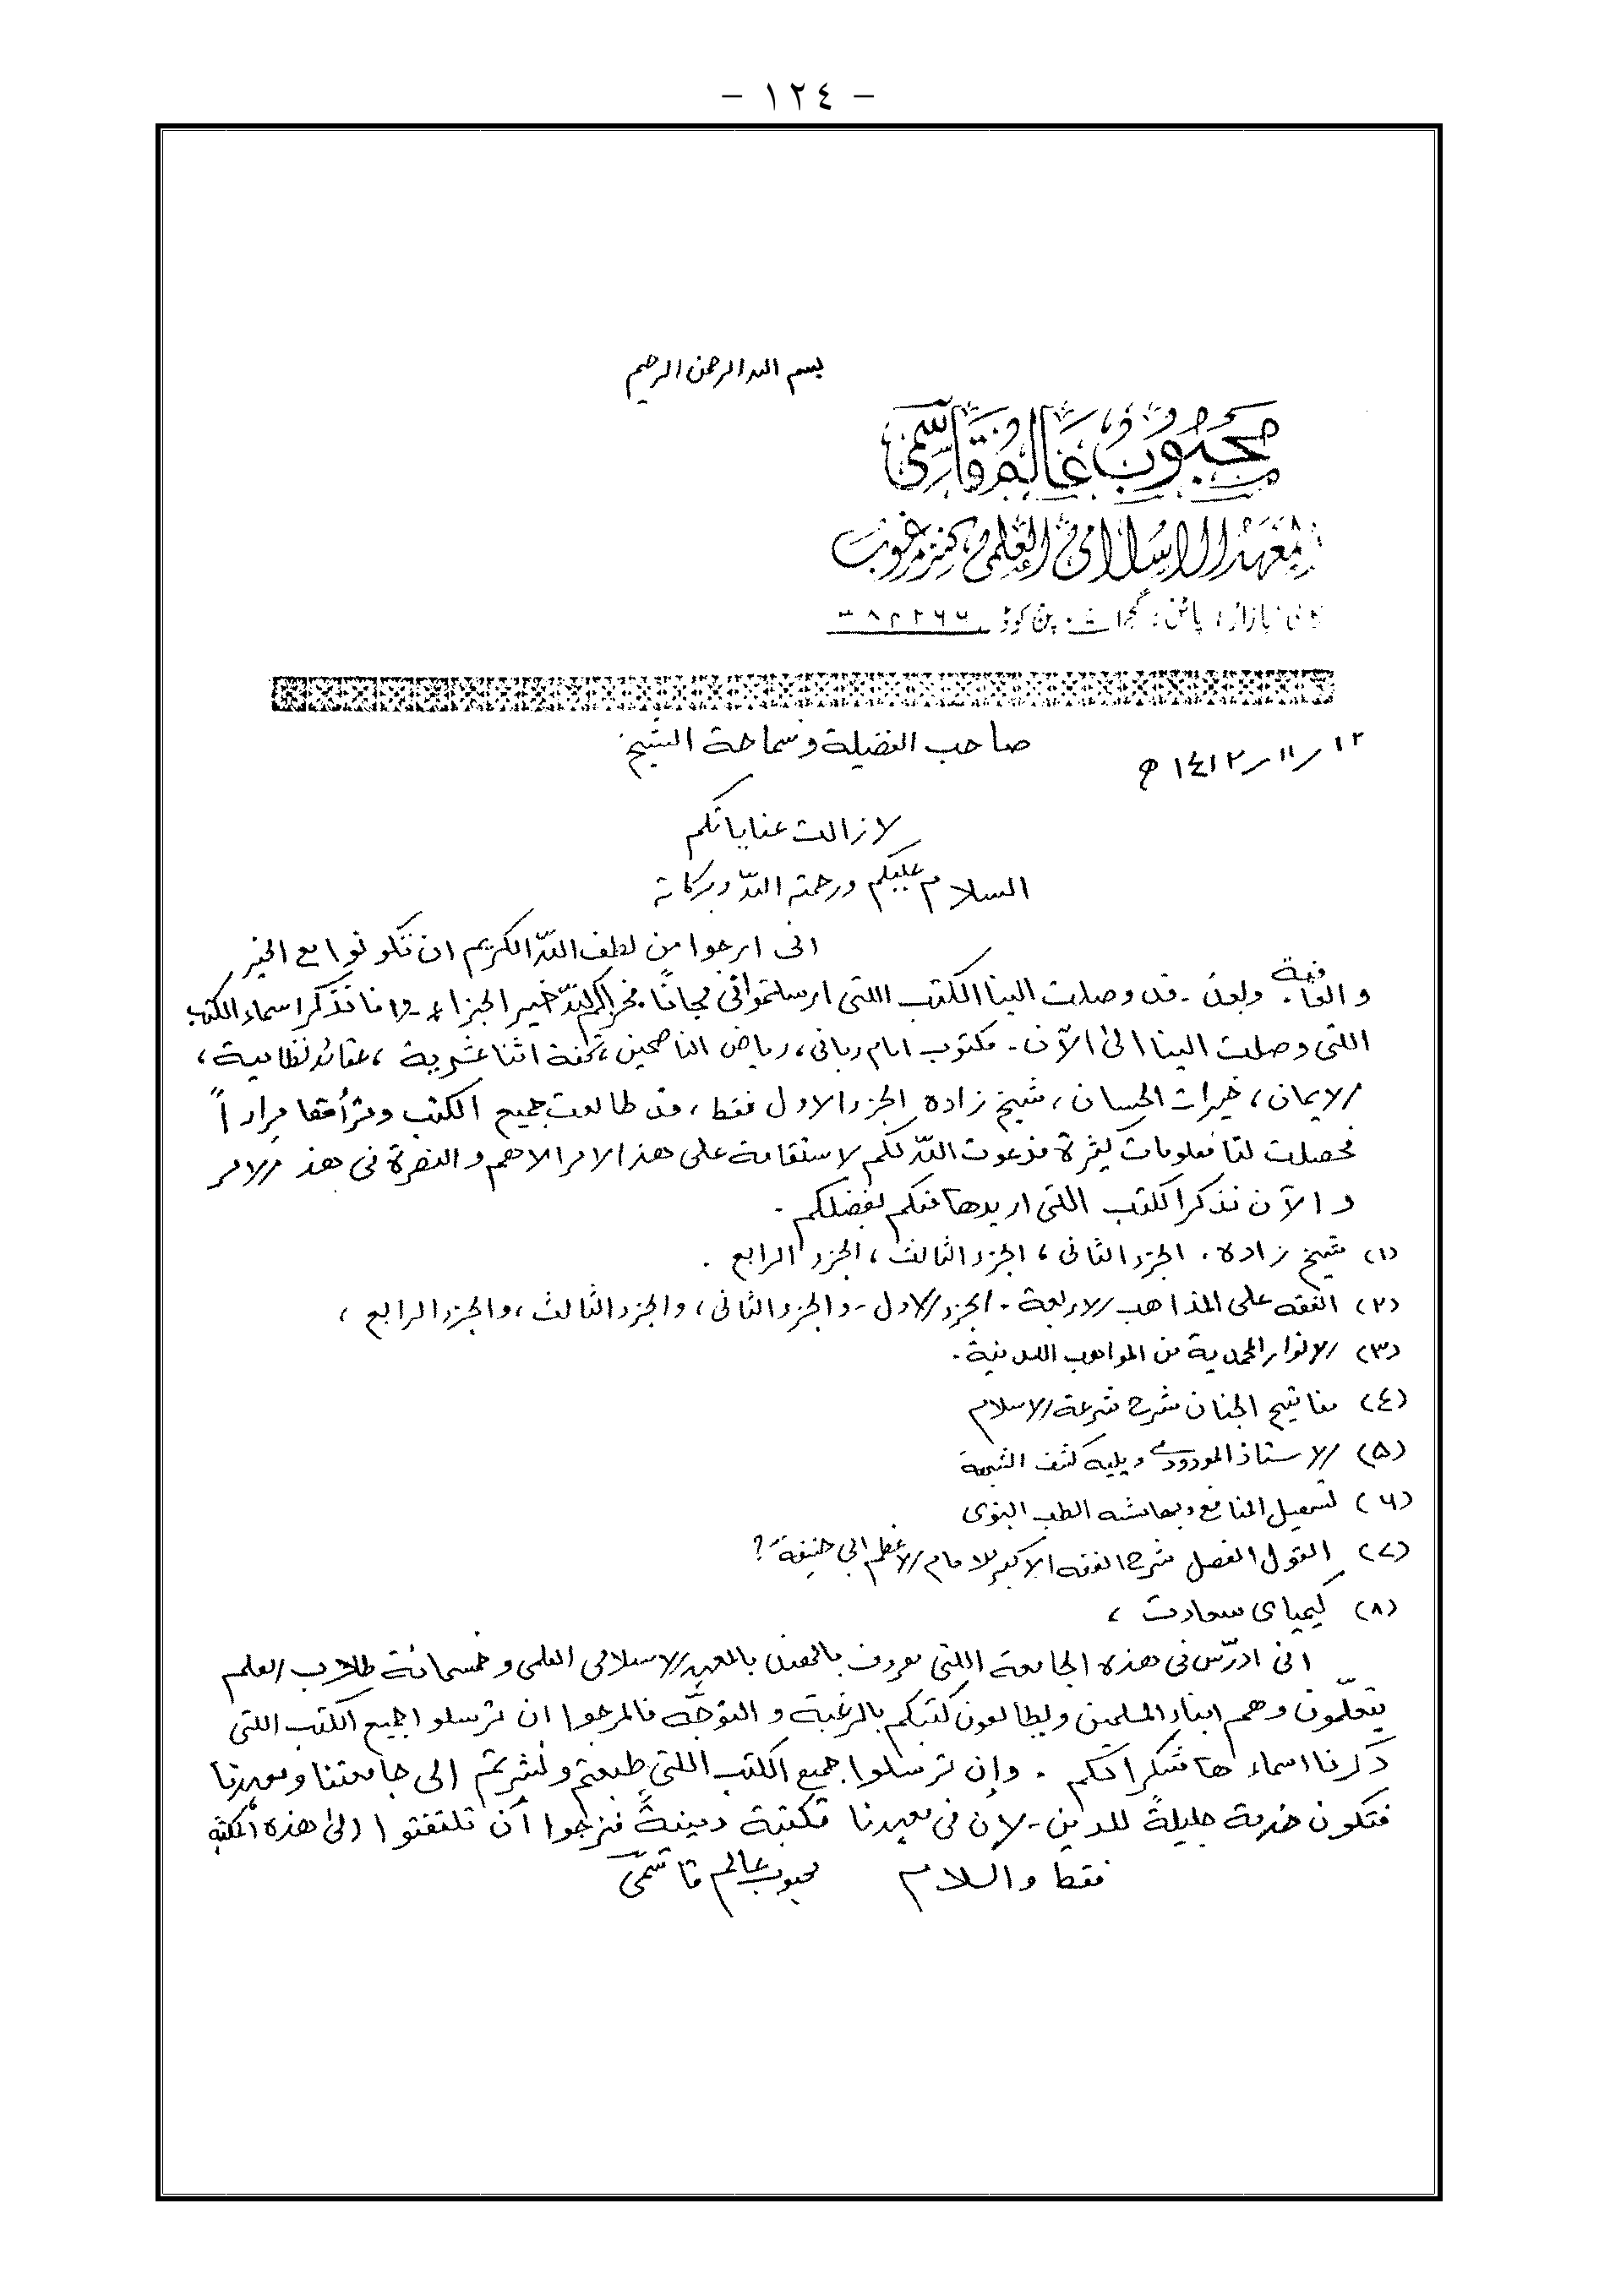 - ١٢٤ -
بسم الله الرحمن الرحيم
محبوب عالم قاسمی
المعهد الاسلامی العلمی کنز مرغوب
بازار، پاٹن، گجرات. پن کوڈ
١٢ ر ١١ ر ١٤١٢ ھ
صاحب الفضيلة وسماحة الشيخ
لا زالت عناياتكم
السلام عليكم ورحمة اللّه وبركاته
انى ارجوا من لطف اللّه الكريم ان تكونوا مع الخير
والعافية وبعد - قد وصلت الينا الكتب اللتى ارسلتموانى مجاناً فجزاكم اللّه خير الجزاء - وانا نذكر اسماء الكتب
اللتى وصلت الينا الىٰ الآن - مكتوب امام ربانى، رياض الناصحين، تحفة اثنا عشرية، عقائد نظامية،
الايمان، خيرات الحسان، شيخ زاده الجزء الاول فقط، قد طالعت جميع الكتب وقرأتها مراراً
فحصلت لنا معلومات كثيرة فدعوت اللّه لكم لاستقامة على هذا الامر الاهم والنصرة فى هذ الامر
و الآن نذكر الكتب اللتى اريدها منكم بفضلكم .
(١) شيخ زاده . الجزء الثانى، الجزء الثالث، الجزء الرابع .
(٢) الفقه على المذاهب الاربعة . الجزء الاول - والجزء الثانى، والجزء الثالث، والجزء الرابع،
(٣) الانوار المحمدية من المواهب اللدنية .
(٤) مفاتيح الجنان شرح شرعة الاسلام
(٥) الاستاذ المودودى ويليه كشف الشبهة
(٦) تسهيل المنافع وبهامشه الطب النبوى
(٧) القول الفصل شرح الفقه الاكبر للامام الاعظم ابى حنيفة ؒ
(٨) كيمياى سعادت ،
انى ادرّس فى هذه الجامعة اللتى معروف بالهند بالمعهد الاسلامى العلمى وخمسمائة طلاب العلم
يتعلّمون وهم ابناء المسلمين ويطالعون كتبكم بالرغبة و التوجّه فالمرجوا ان ترسلوا جميع الكتب اللتى
ذكرنا اسماء ها شكرا لكم . وإن ترسلوا جميع الكتب اللتى طبعتم ونشرتم الى جامعتنا ومعهدنا
فتكون خدمة جليلةً للدين - لان فى معهدنا مكتبة دينيةً فنرجوا أن تلتفتوا الىٰ هذه المكتبة
فقط والسلام محبوب عالم قاسمىّ